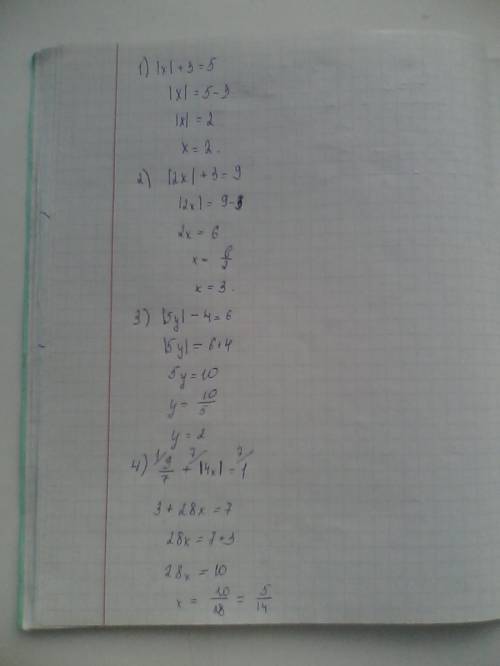 1) |x| + 3 = 5
|x| = 5 - 3
|x| = 2
x = 2.
2) |2x| + 3 = 9
|2x| = 9 - 3
2x = 6
x = 6/2
x = 3.
3) |5y| - 4 = 6
|5y| = 6 + 4
5y = 10
y = 10/5
y = 2
4) 3/7 + |4x| = 1
3 + 28x = 7
28x = 7+3
28x = 10
x = 10/28 = 5/14